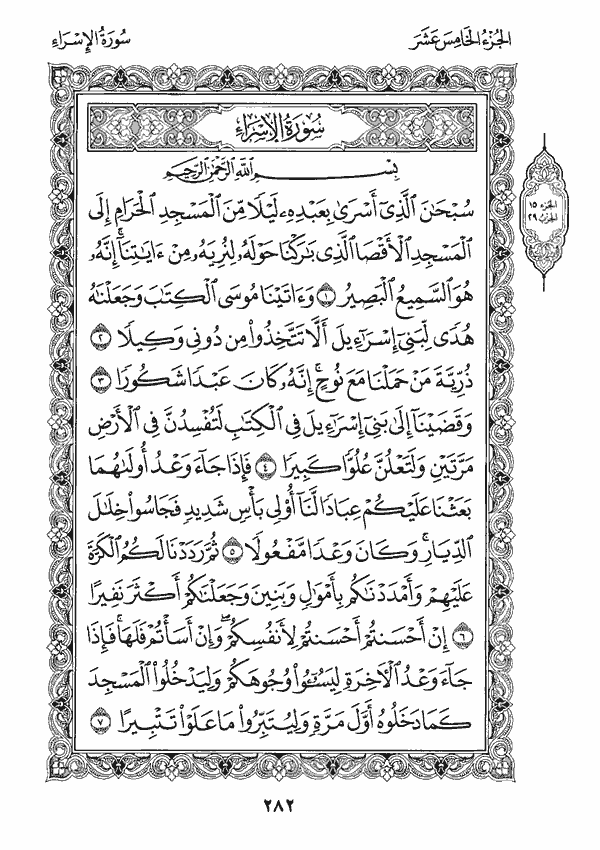 سُورَةُ الإِسْرَاءِ
الجُزْءُ الخَامِسَ عَشَرَ
سُورَةُ الإِسْرَاءِ
بِسْمِ ٱللَّهِ ٱلرَّحْمَٰنِ ٱلرَّحِيمِ
سُبْحَٰنَ ٱلَّذِىٓ أَسْرَىٰ بِعَبْدِهِۦ لَيْلًا مِّنَ ٱلْمَسْجِدِ ٱلْحَرَامِ إِلَى
ٱلْمَسْجِدِ ٱلْأَقْصَا ٱلَّذِى بَٰرَكْنَا حَوْلَهُۥ لِنُرِيَهُۥ مِنْ ءَايَٰتِنَآ ۚ إِنَّهُۥ
هُوَ ٱلسَّمِيعُ ٱلْبَصِيرُ ١ وَءَاتَيْنَا مُوسَى ٱلْكِتَٰبَ وَجَعَلْنَٰهُ
هُدًى لِّبَنِىٓ إِسْرَٰٓءِيلَ أَلَّا تَتَّخِذُوا۟ مِن دُونِى وَكِيلًا ٢
ذُرِّيَّةَ مَنْ حَمَلْنَا مَعَ نُوحٍ ۚ إِنَّهُۥ كَانَ عَبْدًا شَكُورًا ٣
وَقَضَيْنَآ إِلَىٰ بَنِىٓ إِسْرَٰٓءِيلَ فِى ٱلْكِتَٰبِ لَتُفْسِدُنَّ فِى ٱلْأَرْضِ
مَرَّتَيْنِ وَلَتَعْلُنَّ عُلُوًّا كَبِيرًا ٤ فَإِذَا جَآءَ وَعْدُ أُولَىٰهُمَا
بَعَثْنَا عَلَيْكُمْ عِبَادًا لَّنَآ أُو۟لِى بَأْسٍ شَدِيدٍ فَجَاسُوا۟ خِلَٰلَ
ٱلدِّيَارِ ۚ وَكَانَ وَعْدًا مَّفْعُولًا ٥ ثُمَّ رَدَدْنَا لَكُمُ ٱلْكَرَّةَ
عَلَيْهِمْ وَأَمْدَدْنَٰكُم بِأَمْوَٰلٍ وَبَنِينَ وَجَعَلْنَٰكُمْ أَكْثَرَ نَفِيرًا
٦ إِنْ أَحْسَنتُمْ أَحْسَنتُمْ لِأَنفُسِكُمْ ۖ وَإِنْ أَسَأْتُمْ فَلَهَا ۚ فَإِذَا
جَآءَ وَعْدُ ٱلْءَاخِرَةِ لِيَسُۥٓـُٔوا۟ وُجُوهَكُمْ وَلِيَدْخُلُوا۟ ٱلْمَسْجِدَ
كَمَا دَخَلُوهُ أَوَّلَ مَرَّةٍ وَلِيُتَبِّرُوا۟ مَا عَلَوْا۟ تَتْبِيرًا ٧
الجزء ١٥
الحزب ٢٩
٢٨٢